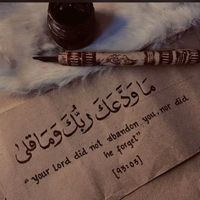 مَا وَدَّعَكَ رَبُّكَ وَمَا قَلَىٰ
"Your Lord did not abandon you, nor did
he forget"
[93:03]